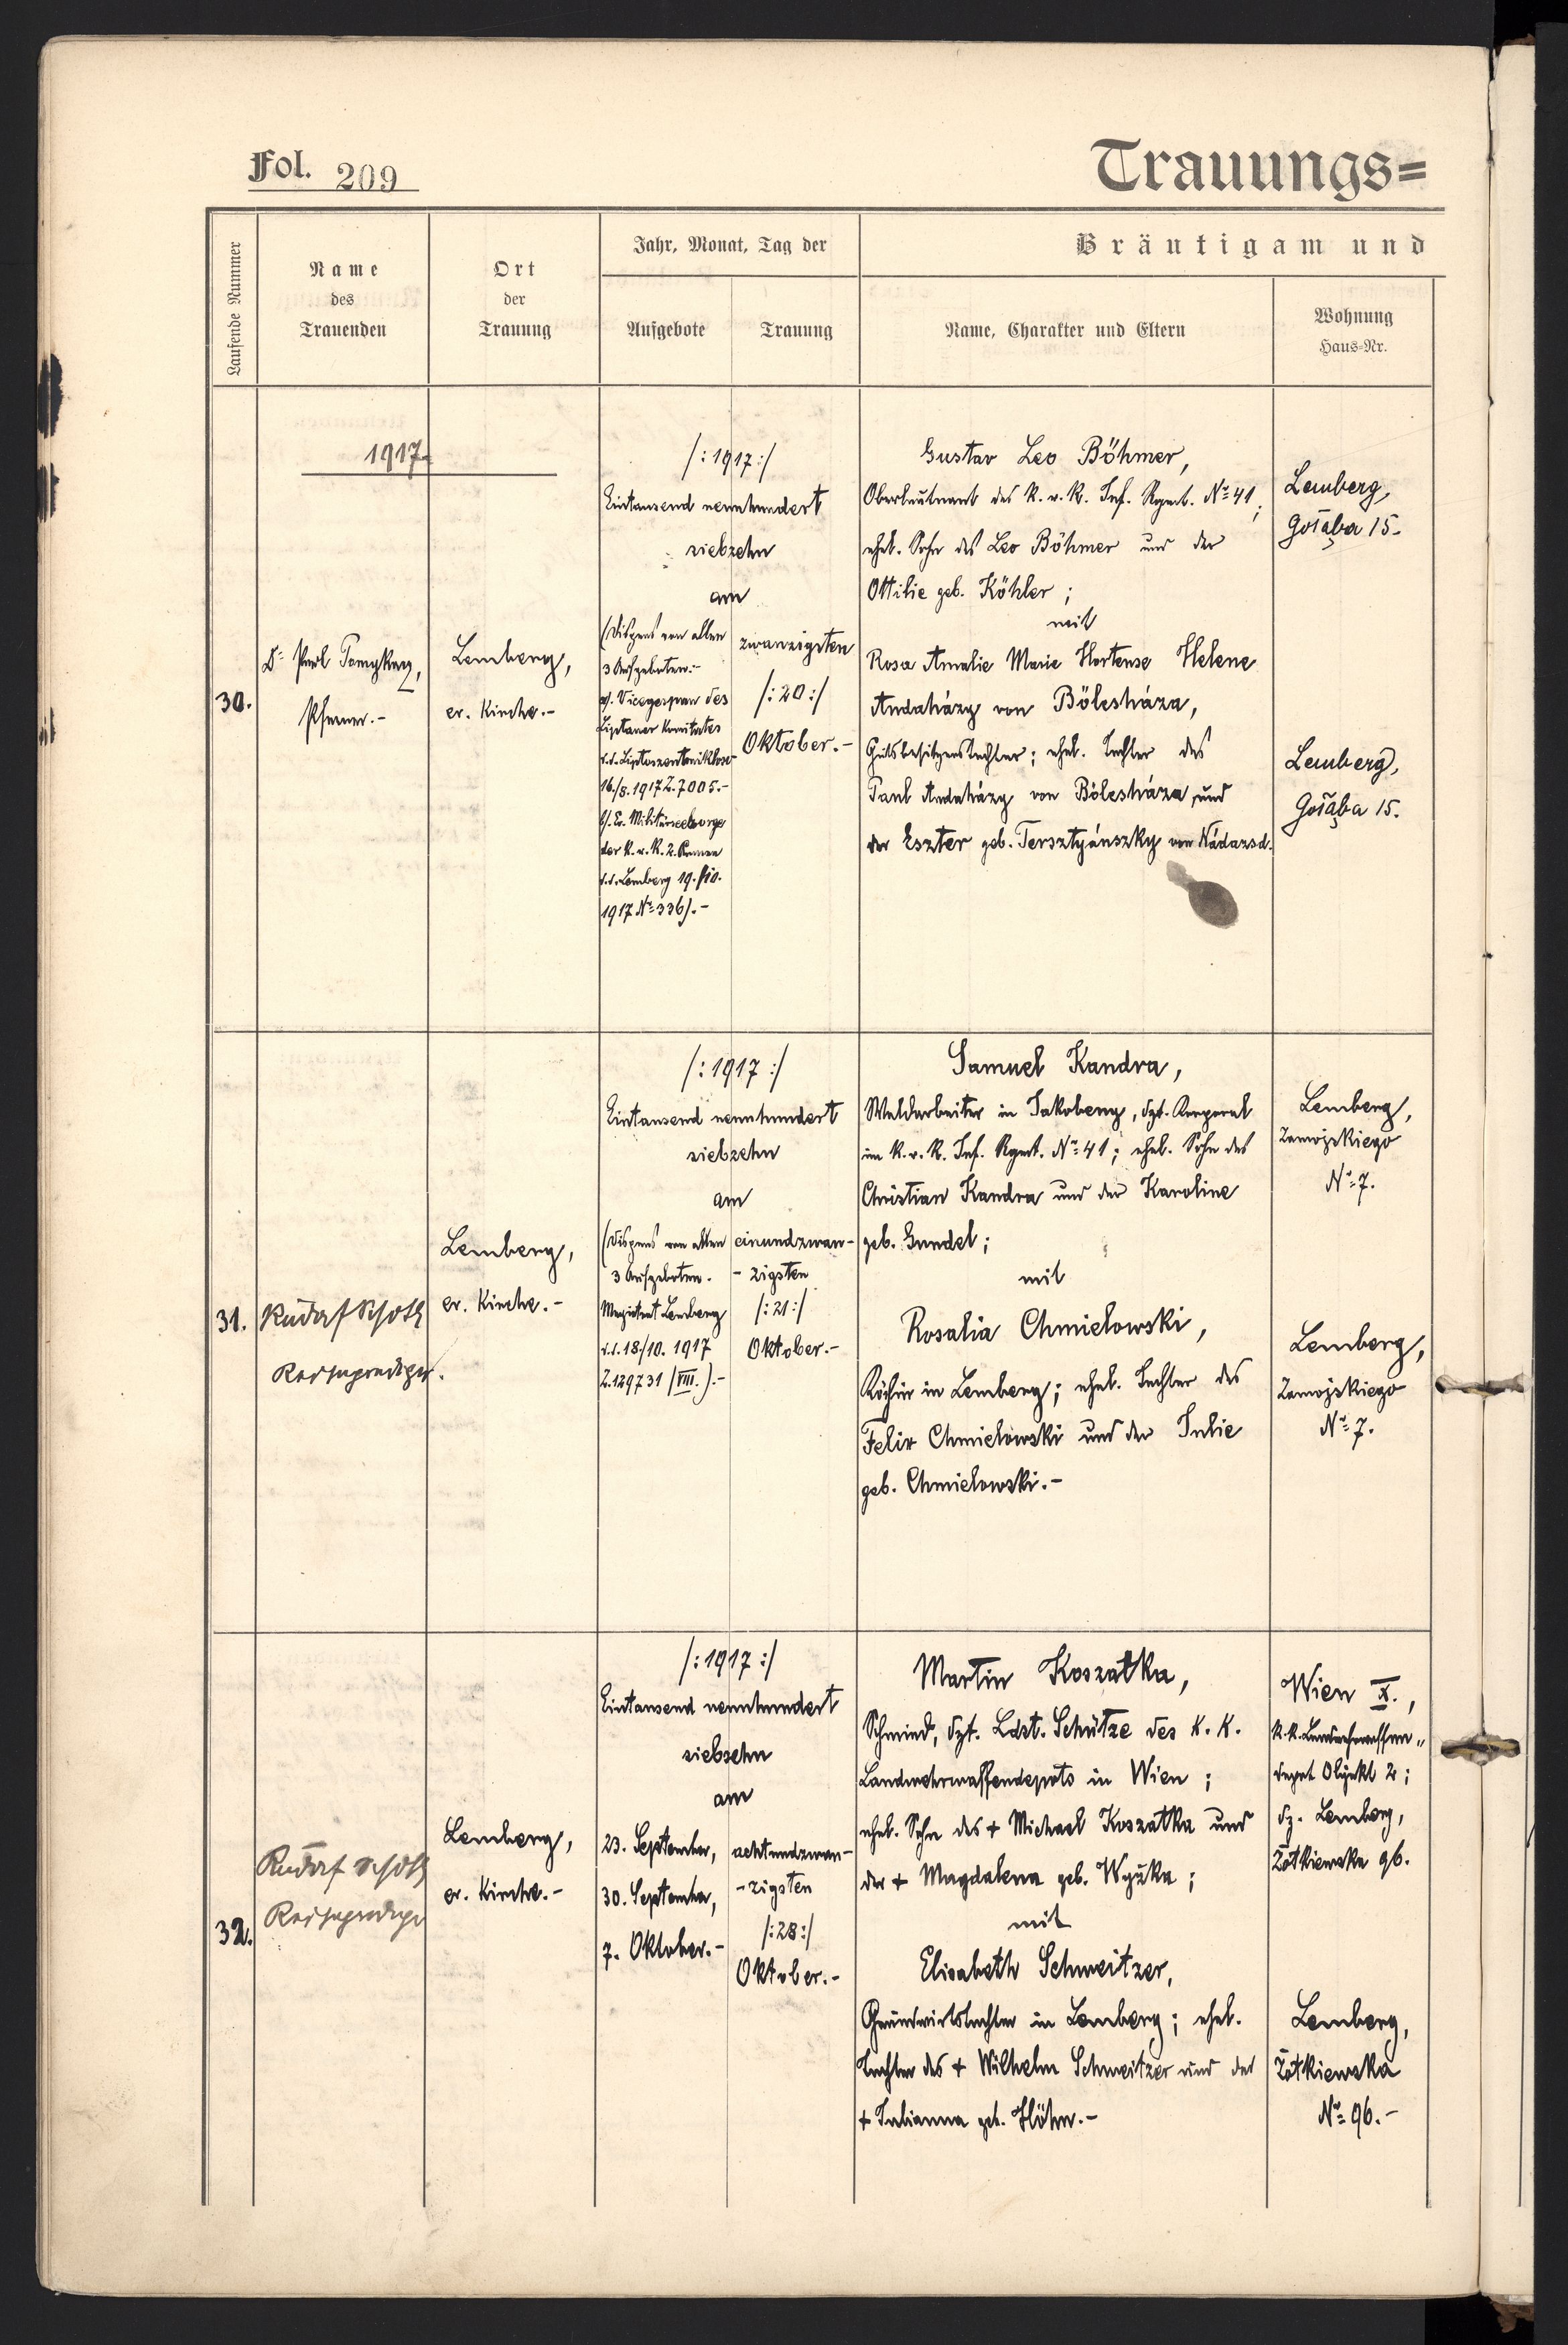 Fol. 209
Trauungs=
Laufende Nummer
Name
des
Trauenden
Ort
der
Trauung
Jahr, Monat, Tag der
Aufgebote
Trauung
Bräutigam und
Name, Charakter und Eltern
Wohnung
Haus-Nr.
1917.
30.
Pfarrer.-
Lemberg,
ev. Kirche.-
/:1917:/
Eintausend neunhundert
siebzehn
am
(Dispens von allen
3 Aufgeboten:-
a/. Vicegespan des
Liptauer Komitates
d.d. Liptószentmiklós
16./8.1917 Z.7005.-
b/. Ev. Militärseelsorge
der k.u.k. 2. Armee
d.d. Lemberg 19./10.
1917 Nr: 336).-
zwanzigsten
/:20:/
Oktober.-
Gustav Leo Böhmer,
Oberleutnant des k.u.k. Inf. Rgmt. Nr: 41;
ehel. Sohn des Leo Böhmer und der
Ottilie geb. Köhler;
mit
Rosa Amalie Marie Hortense Helene
Andaházy von Bölesháza,
Gutsbesitzerstochter; ehel. Tochter des
Paul Andaházy von Bölesháza, und
der Eszter geb. Tersztyánszky von Nádazsd.
Lemberg,
Gołąba 15.
Lemberg,
Gołąba 15.
31.
Rudolf
Reiseprediger.
Lemberg,
ev. Kirche.-
/:1917:/
Eintausend neunhundert
siebzehn
am
(Dispens von allen
3 Aufgeboten.
Magistrat Lemberg
d.d. 18/10. 1917
Z.129731 /VIII.).-
einundzwan-
-zigsten
/:21:/
Oktober.-
Samuel Kandra,
Waldarbeiter in Jakobeny, dzt. Korporal
im k.u.k. Inf. Rgmt. Nr: 41; ehel. Sohn des
Christian Kandra und der Karoline
geb. Gundel;
mit
Rosalia Chmielowski,
Köchin in Lemberg; ehel. Tochter des
Felix Chmielowski und der Julie
geb. Chmielowski.-
Lemberg,
Zamojskiego
Nr: 7.
Lemberg,
Zamojskiego
Nr: 7.
32.
Rudolf
Reiseprediger
Lemberg,
ev. Kirche.-
/:1917:/
Eintausend neunhundert
siebzehn
am
23. September,
30. September,
7. Oktober.-
achtundzwan-
-zigsten
/:28:/
Oktober.-
Martin Koszatka,
Schmied, dzt. Ldst. Schütze des k.k.
Landwehrwaffendepots in Wien;
ehel. Sohn des + Michael Koszatka und
der + Magdalena geb.
mit
Elisabeth Schweitzer,
Grundwirtstochter in Lemberg; ehel.
Tochter des + Wilhelm Schweitzer und der
+ Julianna geb. Höhn.-
Wien X.,
k.k. Landwehrwaffen„
depot Objekt 2;
dz. Lemberg,
Żółkiewska 96.
Lemberg,
Żółkiewska
Nr: 96.-